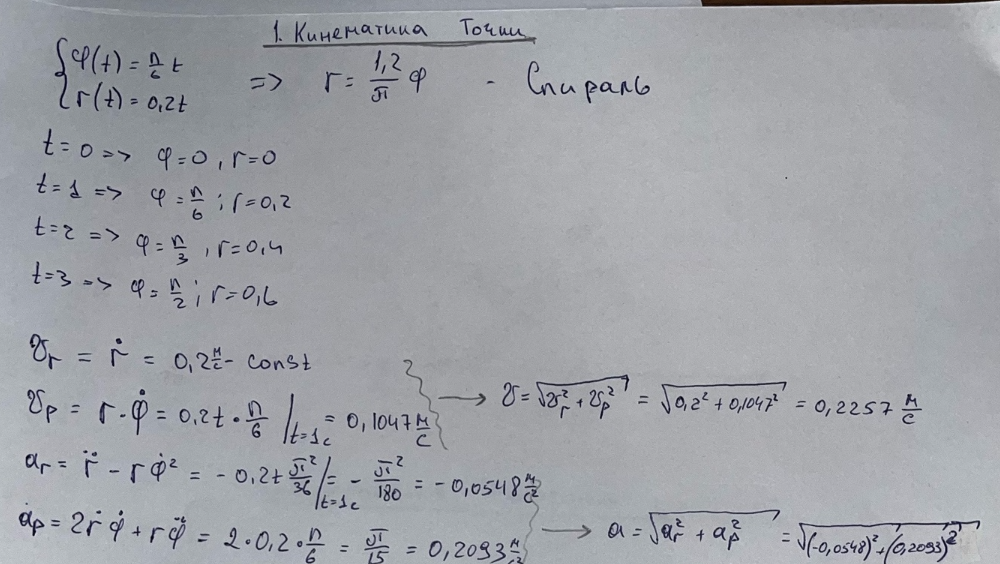 1. Кинематика Точки
{ φ(t) = π/6 t
{ r(t) = 0,2t => r = 1,2/π φ - Спираль
t=0 => φ=0, r=0
t=1 => φ=π/6; r=0,2
t=2 => φ=π/3, r=0,4
t=3 => φ=π/2; r=0,6
υr = ṙ = 0,2 м/с - const
υp = r·φ̇ = 0,2t·π/6 |t=1c = 0,1047 м/с → υ = √(υr² + υp²) = √(0,2² + 0,1047²) = 0,2257 м/с
ar = r̈ - rφ̇² = -0,2t π²/36 |t=1c = -π²/180 = -0,0548 м/с²
ap = 2ṙφ̇ + rφ̈ = 2·0,2·π/6 = π/15 = 0,2093 м/с² → a = √(ar² + ap²) = √((-0,0548)² + (0,2093)²)